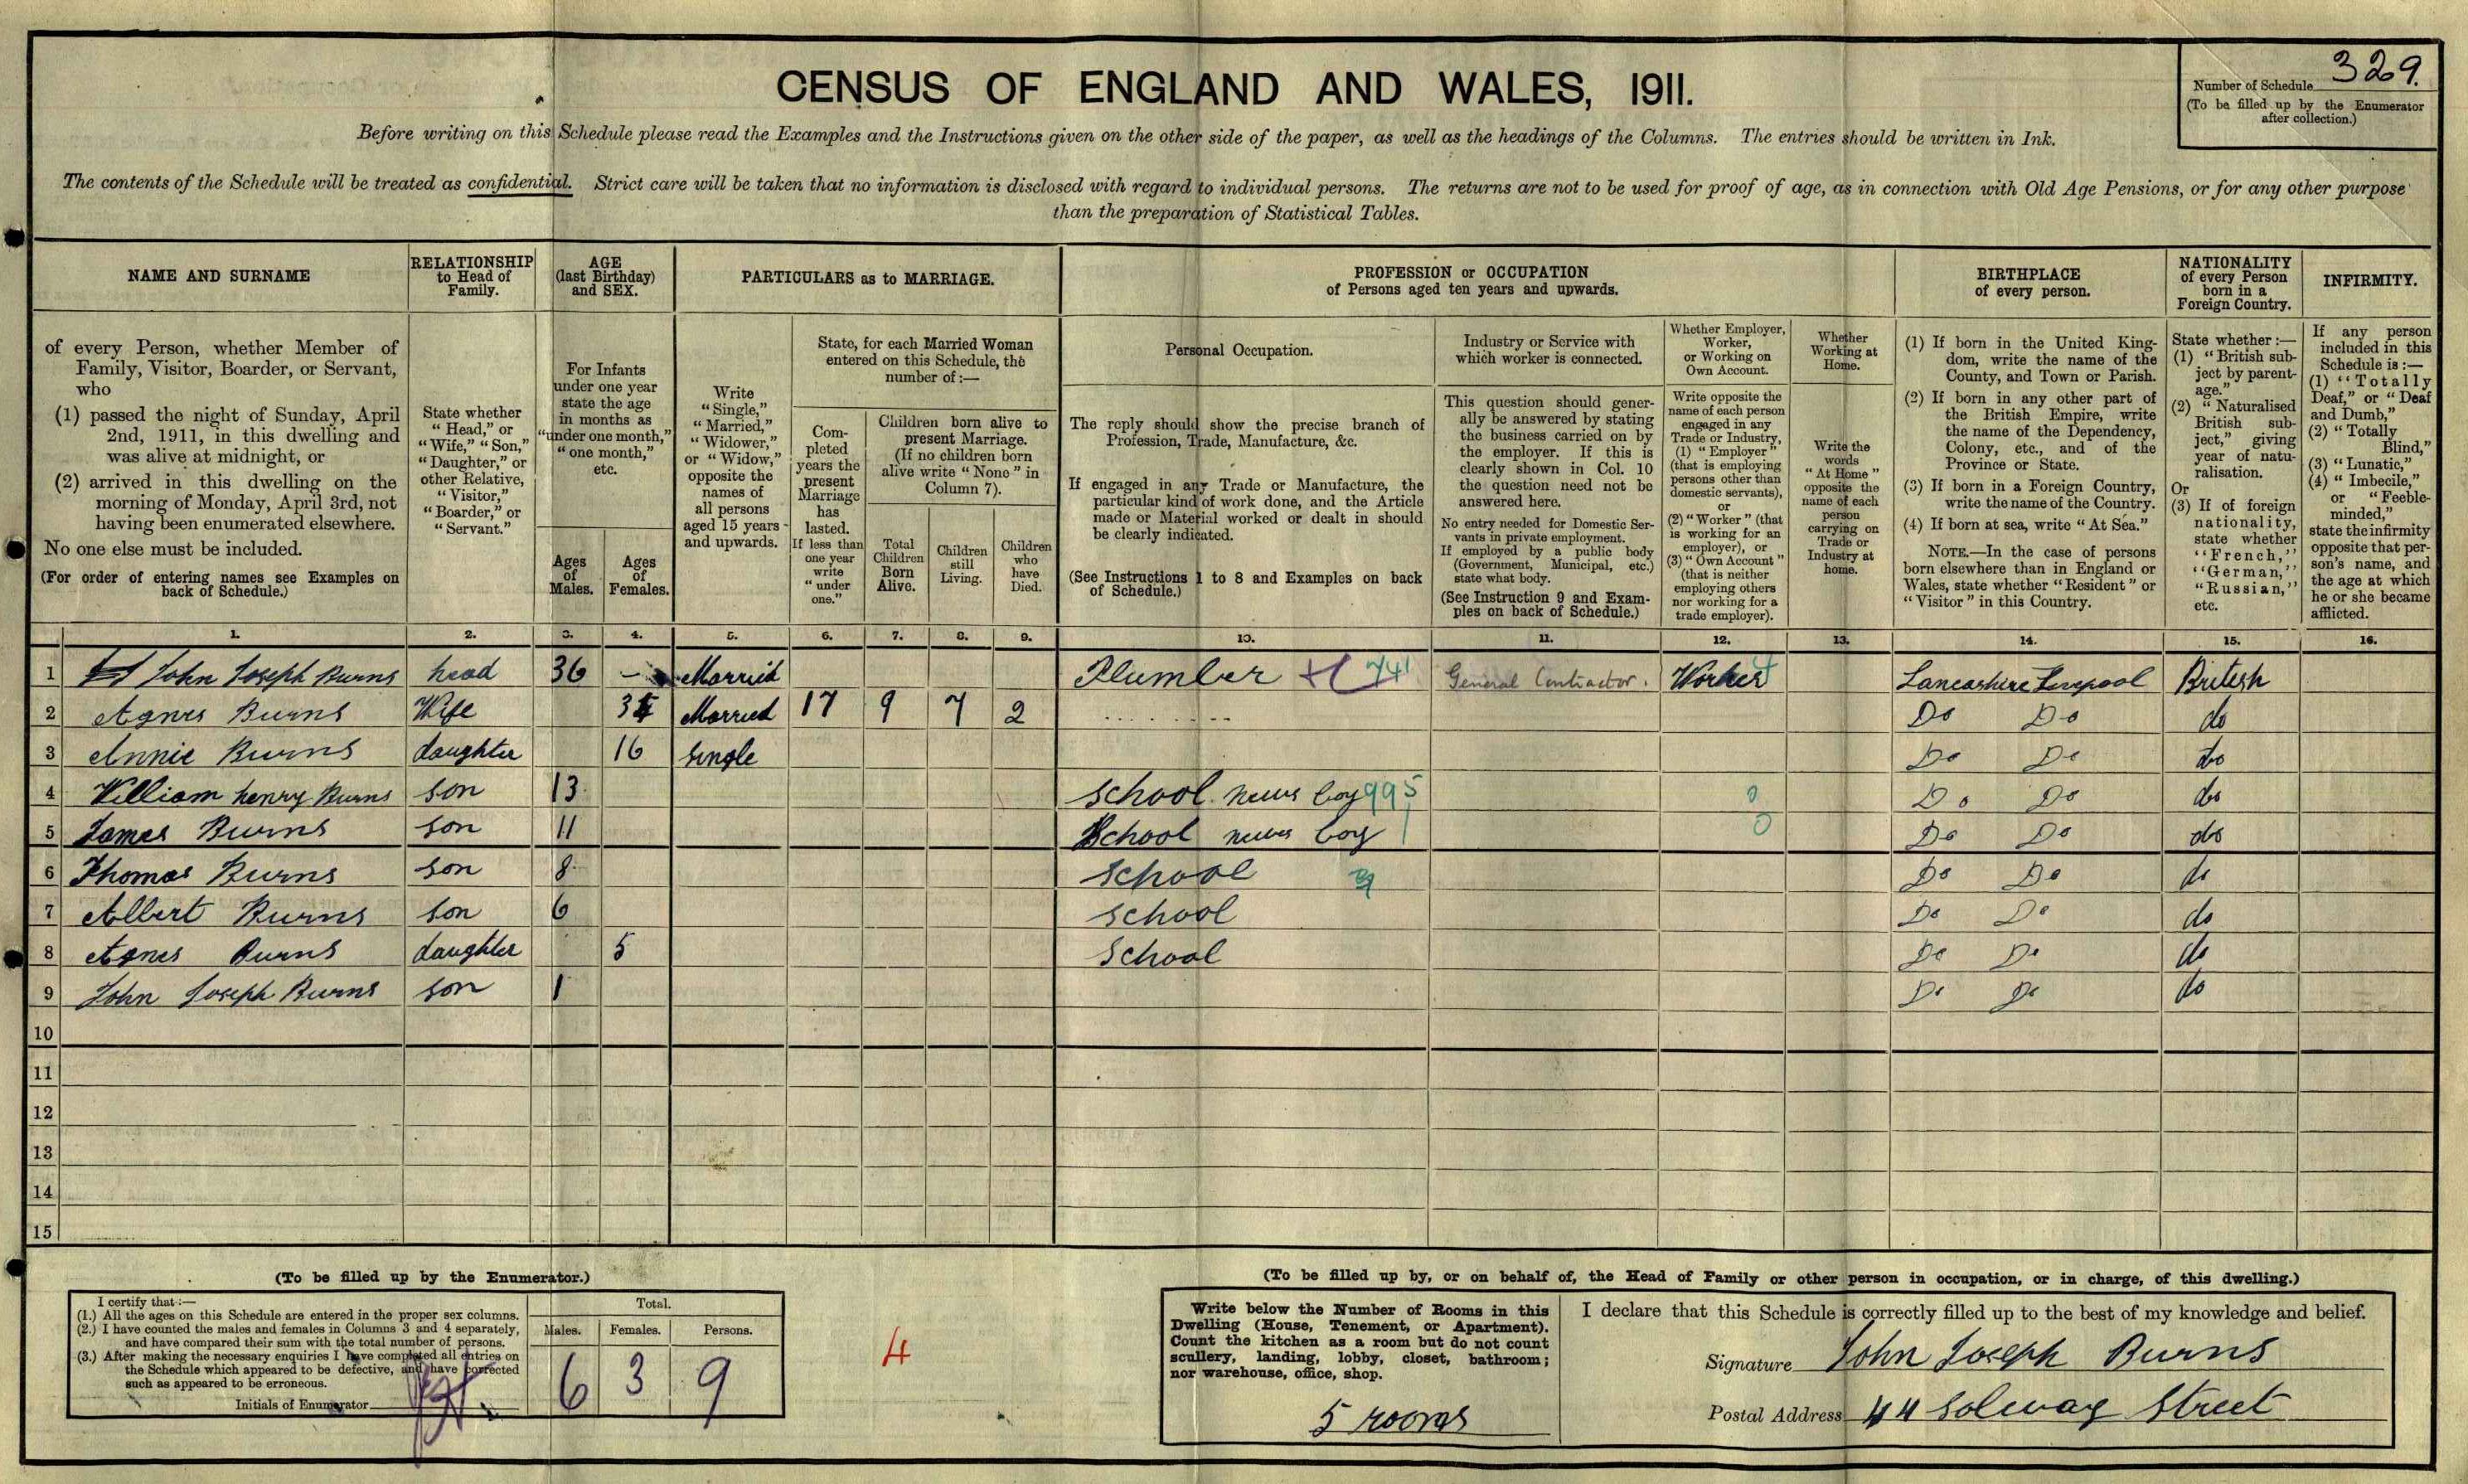 CENSUS OF ENGLAND AND WALES, 1911.
Number of Schedule 329.
(To be filled up by the Enumerator
after collection.)
Before writing on this Schedule please read the Examples and the Instructions given on the other side of the paper, as well as the headings of the Columns. The entries should be written in Ink.
The contents of the Schedule will be treated as confidential. Strict care will be taken that no information is disclosed with regard to individual persons. The returns are not to be used for proof of age, as in connection with Old Age Pensions, or for any other purpose
than the preparation of Statistical Tables.
NAME AND SURNAME
of every Person, whether Member of
Family, Visitor, Boarder, or Servant,
who
(1) passed the night of Sunday, April
2nd, 1911, in this dwelling and
was alive at midnight, or
(2) arrived in this dwelling on the
morning of Monday, April 3rd, not
having been enumerated elsewhere.
No one else must be included.
(For order of entering names see Examples on
back of Schedule.)
RELATIONSHIP
to Head of
Family.
State whether
"Head," or
"Wife," "Son,"
"Daughter," or
other Relative,
"Visitor,"
"Boarder," or
"Servant."
AGE
(last Birthday)
and SEX.
For Infants
under one year
state the age
in months as
"under one month,"
"one month,"
etc.
Ages
of
Males.
Ages
of
Females.
PARTICULARS as to MARRIAGE.
Write
"Single,"
"Married,"
"Widower,"
or "Widow,"
opposite the
names of
all persons
aged 15 years
and upwards.
State, for each Married Woman
entered on this Schedule, the
number of:—
Com-
pleted
years the
present
Marriage
has
lasted.
If less than
one year
write
"under
one."
Children born alive to
present Marriage.
(If no children born
alive write "None" in
Column 7).
Total
Children
Born
Alive.
Children
still
Living.
Children
who
have
Died.
PROFESSION or OCCUPATION
of Persons aged ten years and upwards.
Personal Occupation.
The reply should show the precise branch of
Profession, Trade, Manufacture, &c.
If engaged in any Trade or Manufacture, the
particular kind of work done, and the Article
made or Material worked or dealt in should
be clearly indicated.
(See Instructions 1 to 8 and Examples on back
of Schedule.)
Industry or Service with
which worker is connected.
This question should gener-
ally be answered by stating
the business carried on by
the employer. If this is
clearly shown in Col. 10
the question need not be
answered here.
No entry needed for Domestic Ser-
vants in private employment.
If employed by a public body
(Government, Municipal, etc.)
state what body.
(See Instruction 9 and Exam-
ples on back of Schedule.)
Whether Employer,
Worker,
or Working on
Own Account.
Write opposite the
name of each person
engaged in any
Trade or Industry,
(1) "Employer"
(that is employing
persons other than
domestic servants),
or
(2) "Worker" (that
is working for an
employer), or
(3) "Own Account"
(that is neither
employing others
nor working for a
trade employer).
Whether
Working at
Home.
Write the
words
"At Home"
opposite the
name of each
person
carrying on
Trade or
Industry at
home.
BIRTHPLACE
of every person.
(1) If born in the United King-
dom, write the name of the
County, and Town or Parish.
(2) If born in any other part of
the British Empire, write
the name of the Dependency,
Colony, etc., and of the
Province or State.
(3) If born in a Foreign Country,
write the name of the Country.
(4) If born at sea, write "At Sea."
NOTE.—In the case of persons
born elsewhere than in England or
Wales, state whether "Resident" or
"Visitor" in this Country.
NATIONALITY
of every Person
born in a
Foreign Country.
State whether:—
(1) "British sub-
ject by parent-
age."
(2) "Naturalised
British sub-
ject," giving
year of natu-
ralisation.
Or
(3) If of foreign
nationality,
state whether
"French,"
"German,"
"Russian,"
etc.
INFIRMITY.
If any person
included in this
Schedule is:—
(1) "Totally
Deaf," or "Deaf
and Dumb,"
(2) "Totally
Blind,"
(3) "Lunatic,"
(4) "Imbecile,"
or "Feeble-
minded,"
state the infirmity
opposite that per-
son's name, and
the age at which
he or she became
afflicted.
1. 2. 3. 4. 5. 6. 7. 8. 9. 10. 11. 12. 13. 14. 15. 16.
1 John Joseph Burns head 36 – Married Plumber 741 General Contractor. Worker Lancashire Liverpool British
2 Agnes Burns Wife Married 17 9 7 2 Do Do do
3 Annie Burns daughter 16 single Do Do do
4 William henry Burns son 13 school news boy 995 0 Do Do do
5 James Burns son 11 School news boy 0 Do Do do
6 Thomas Burns son 8 School Do Do do
7 Albert Burns son 6 school Do Do do
8 Agnes Burns daughter 5 School Do Do do
9 John Joseph Burns son 1 Do Do do
10
11
12
13
14
15
(To be filled up by the Enumerator.)
I certify that:—
(1.) All the ages on this Schedule are entered in the proper sex columns.
(2.) I have counted the males and females in Columns 3 and 4 separately,
and have compared their sum with the total number of persons.
(3.) After making the necessary enquiries I have completed all entries on
the Schedule which appeared to be defective, and have corrected
such as appeared to be erroneous.
Initials of Enumerator
Total.
Males. Females. Persons.
6 3 9
4
(To be filled up by, or on behalf of, the Head of Family or other person in occupation, or in charge, of this dwelling.)
Write below the Number of Rooms in this
Dwelling (House, Tenement, or Apartment).
Count the kitchen as a room but do not count
scullery, landing, lobby, closet, bathroom;
nor warehouse, office, shop.
5 rooms
I declare that this Schedule is correctly filled up to the best of my knowledge and belief.
Signature John Joseph Burns
Postal Address 44 Solway Street